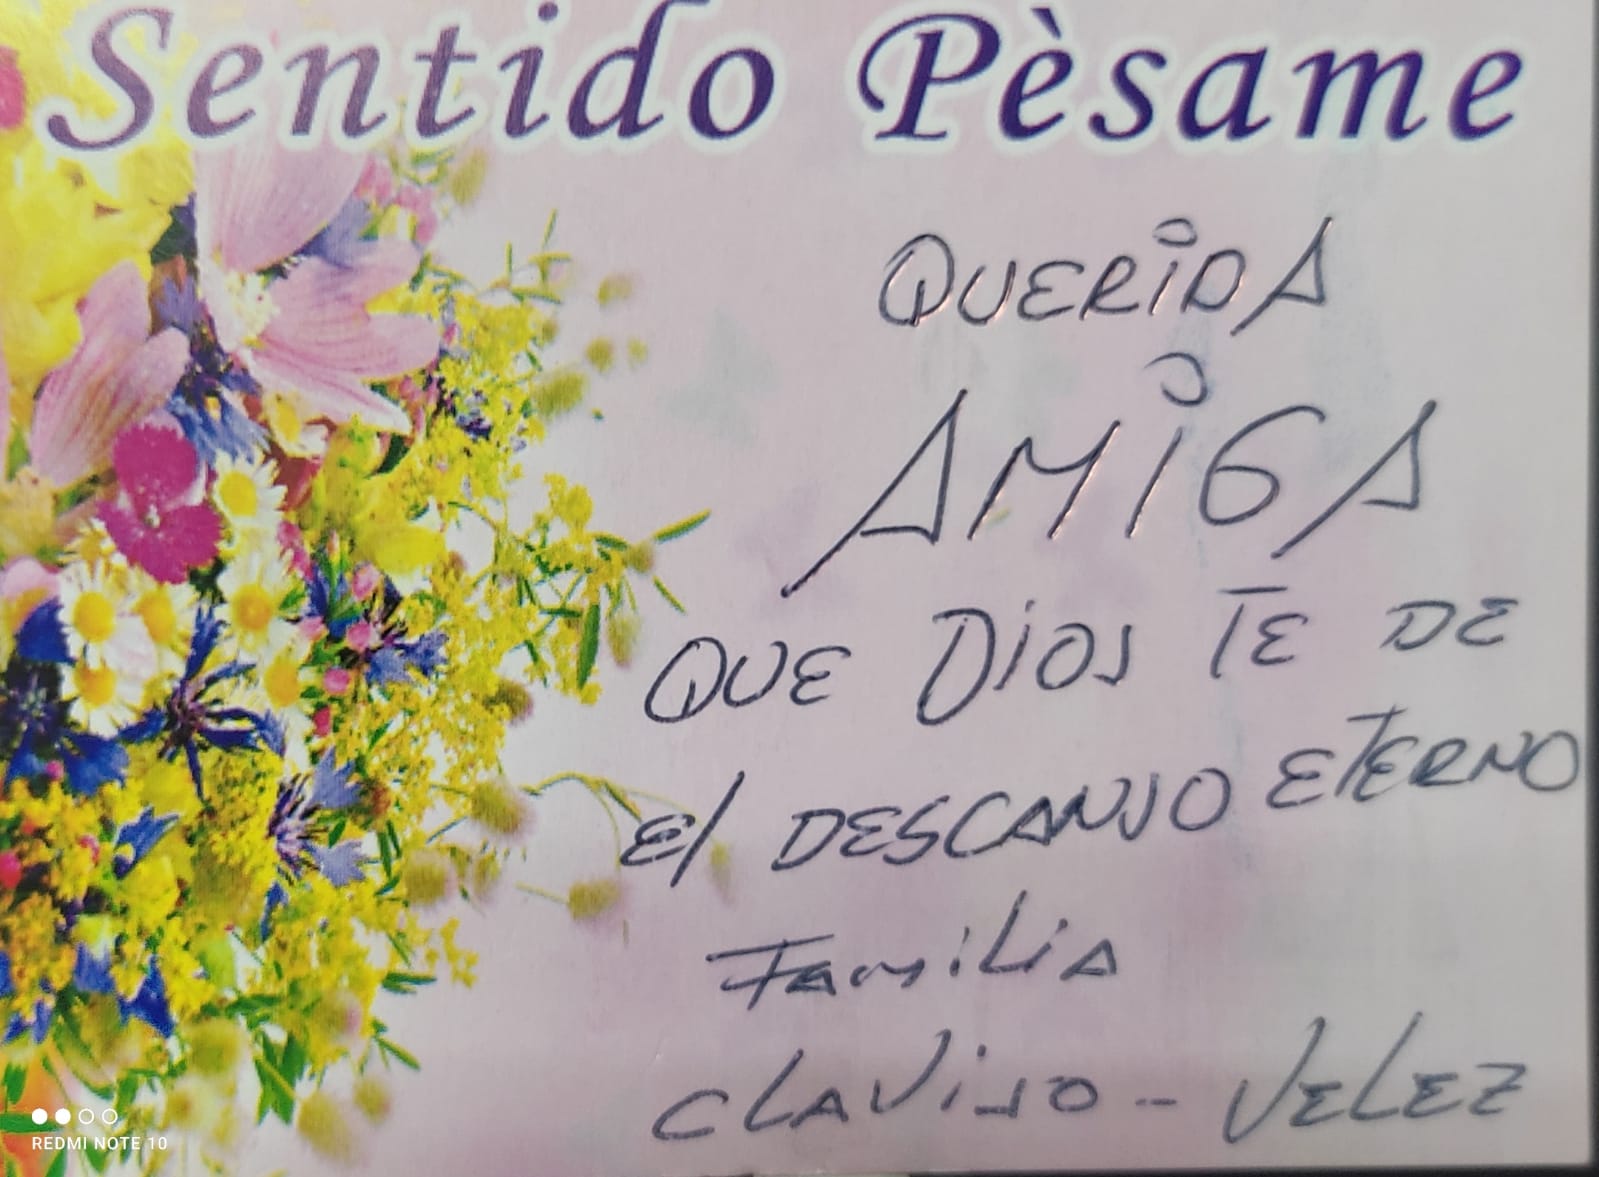 Sentido Pèsame
QUERIDA
AMIGA
QUE DIOS TE DE
El DESCANSO ETERNO
FAMILIA
CLAVIJO - VELEZ
REDMI NOTE 10